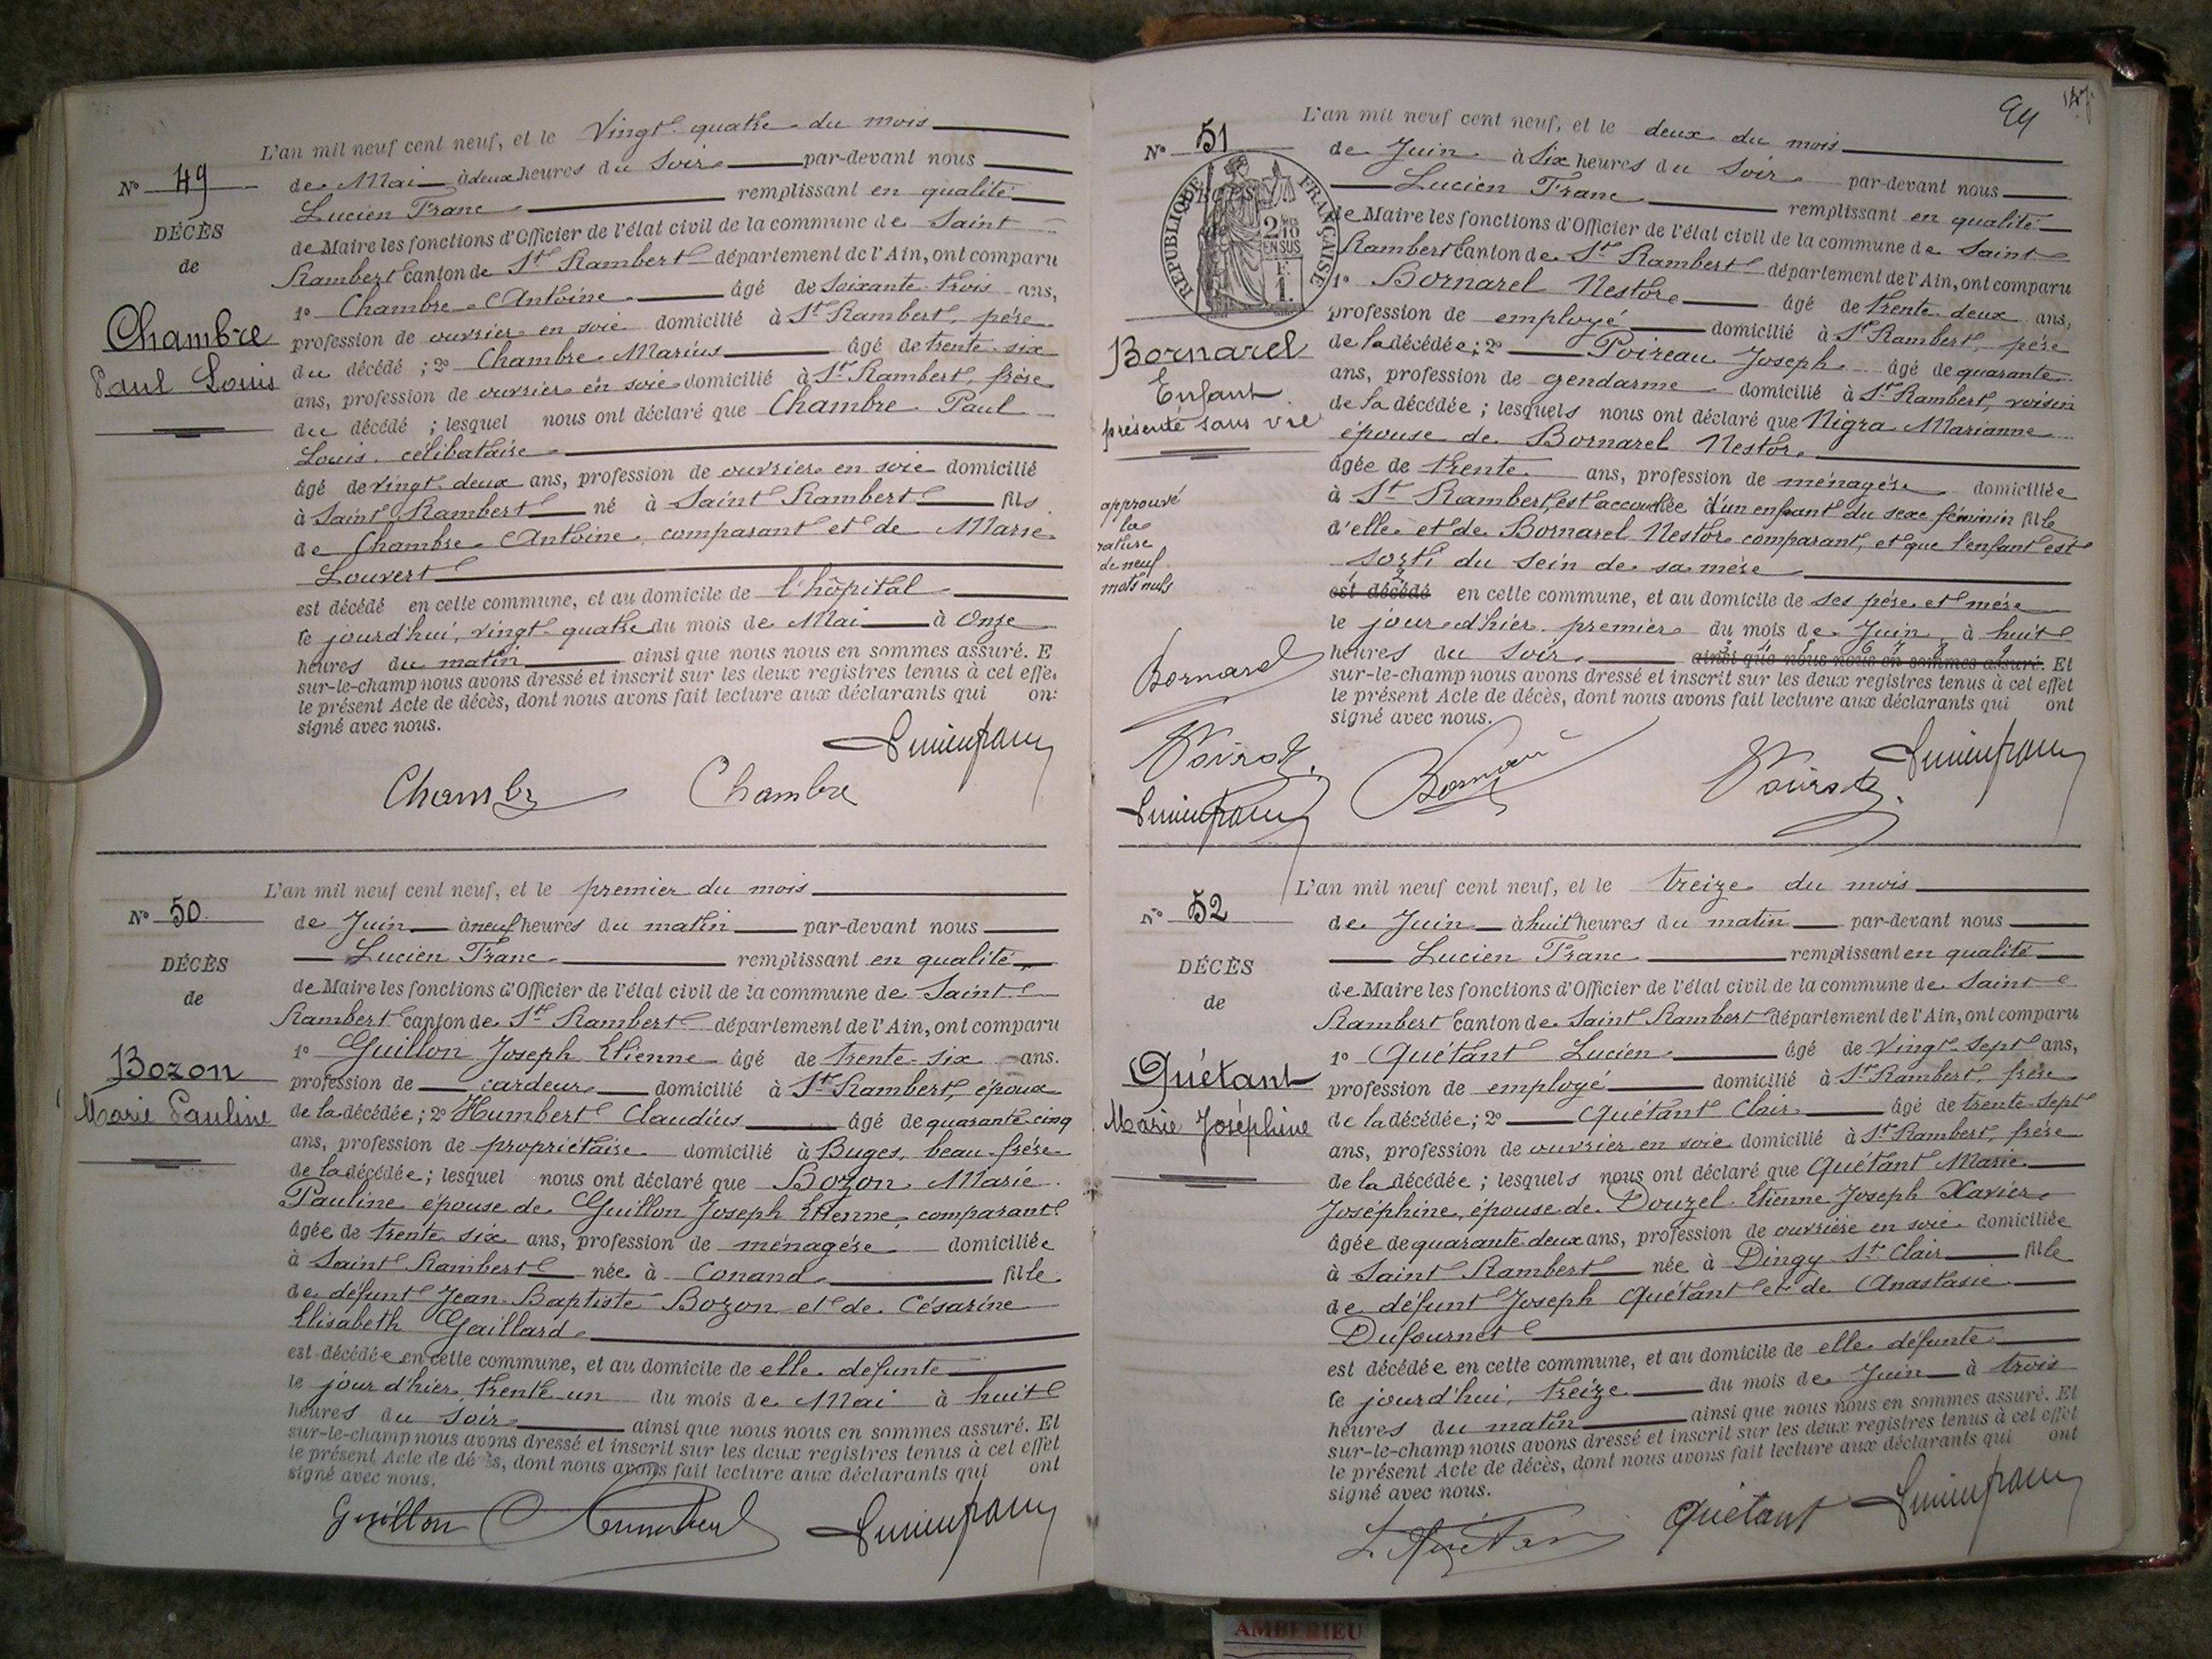 L'an mil neuf cent neuf, et le Vingt-quatre du mois
N° 49
de Mai à deux heures du Soir par-devant nous
Lucien Franc remplissant en qualité
DÉCÈS
de Maire les fonctions d'Officier de l'état civil de la commune de Saint
de
Rambert canton de St Rambert département de l'Ain, ont comparu
1° Chambre Antoine âgé de Soixante-trois ans,
Chambre
profession de ouvrier en soie domicilié à St Rambert, père
Paul Louis
du décédé ; 2° Chambre Marius âgé de trente-six
ans, profession de ouvrier en soie domicilié à St Rambert, frère
du décédé ; lesquel nous ont déclaré que Chambre Paul
Louis, célibataire
âgé de vingt-deux ans, profession de ouvrier en soie domicilié
à Saint Rambert né à Saint Rambert fils
de Chambre Antoine, comparant et de Marie
Louvert
est décédé en cette commune, et au domicile de l'hôpital
le jourd'hui, vingt-quatre du mois de Mai à Onze
heures du matin ainsi que nous nous en sommes assuré. E
sur-le-champ nous avons dressé et inscrit sur les deux registres tenus à cet effe
le présent Acte de décès, dont nous avons fait lecture aux déclarants qui on
signé avec nous.
Chambre Chambre Lucien franc
L'an mil neuf cent neuf, et le premier du mois
N° 50
de Juin à neuf heures du matin par-devant nous
Lucien Franc remplissant en qualité
DÉCÈS
de Maire les fonctions d'Officier de l'état civil de la commune de Saint
de
Rambert canton de St Rambert département de l'Ain, ont comparu
1° Guillon Joseph Etienne âgé de trente-six ans.
Bozon
profession de cardeur domicilié à St Rambert, époux
Marie Pauline
de la décédée ; 2° Humbert Claudius âgé de quarante-cinq
ans, profession de propriétaire domicilié à Buges, beau-frère
de la décédée ; lesquel nous ont déclaré que Bozon Marie
Pauline épouse de Guillon Joseph Etienne, comparant
âgée de trente six ans, profession de ménagère domiciliée
à Saint Rambert née à Conand fille
de défunt Jean-Baptiste Bozon et de Césarine
Elisabeth Gaillard
est décédée en cette commune, et au domicile de elle défunte
le jour d'hier, trente-un du mois de Mai à huit
heures du Soir ainsi que nous nous en sommes assuré. Et
sur-le-champ nous avons dressé et inscrit sur les deux registres tenus à cet effet
le présent Acte de décès, dont nous avons fait lecture aux déclarants qui ont
signé avec nous.
Guillon Humbert Lucien franc
94
L'an mil neuf cent neuf, et le deux du mois
N° 51
de Juin à Six heures du Soir par-devant nous
Lucien Franc remplissant en qualité
RÉPUBLIQUE FRANÇAISE
2/10 EN SUS
F. 1.
de Maire les fonctions d'Officier de l'état civil de la commune de Saint
Rambert canton de St Rambert département de l'Ain, ont comparu
1° Bornarel Nestor âgé de trente-deux ans,
profession de employé domicilié à St Rambert, père
Bornarel
de la décédée ; 2° Poireau Joseph âgé de quarante
Enfant
ans, profession de gendarme domicilié à St Rambert, voisin
présenté sans vie
de la décédée ; lesquels nous ont déclaré que Nigra Marianne
épouse de Bornarel Nestor
âgée de trente ans, profession de ménagère domiciliée
à St Rambert, est accouchée d'un enfant du sexe féminin fille
d'elle et de Bornarel Nestor comparant, et que l'enfant est
sorti du sein de sa mère
approuvé
la
rature
de neuf
mots nuls
est décédé en cette commune, et au domicile de ses père et mère
le jour d'hier premier du mois de Juin à huit
heures du Soir ainsi que nous nous en sommes assuré. Et
sur-le-champ nous avons dressé et inscrit sur les deux registres tenus à cet effet
le présent Acte de décès, dont nous avons fait lecture aux déclarants qui ont
signé avec nous.
Bornarel
Lucien franc
Lucien franc
L'an mil neuf cent neuf, et le treize du mois
N° 52
de Juin à huit heures du matin par-devant nous
Lucien Franc remplissant en qualité
DÉCÈS
de Maire les fonctions d'Officier de l'état civil de la commune de Saint
de
Rambert canton de Saint Rambert département de l'Ain, ont comparu
1° Quétant Lucien âgé de Vingt-Sept ans,
Quétant
profession de employé domicilié à St Rambert, frère
Marie Joséphine
de la décédée ; 2° Quétant Clair âgé de trente-sept
ans, profession de ouvrier en soie domicilié à St Rambert, frère
de la décédée ; lesquels nous ont déclaré que Quétant Marie
Joséphine, épouse de Douzel Etienne Joseph Xavier
âgée de quarante-deux ans, profession de ouvrière en soie domiciliée
à Saint Rambert née à Dingy-St-Clair fille
de défunt Joseph Quétant et de Anastasie
Dufournet
est décédée en cette commune, et au domicile de elle défunte
le jourd'hui, treize du mois de Juin à trois
heures du matin ainsi que nous nous en sommes assuré. Et
sur-le-champ nous avons dressé et inscrit sur les deux registres tenus à cet effet
le présent Acte de décès, dont nous avons fait lecture aux déclarants qui ont
signé avec nous.
L. Quétan Quétant Lucien franc
AMBERIEU